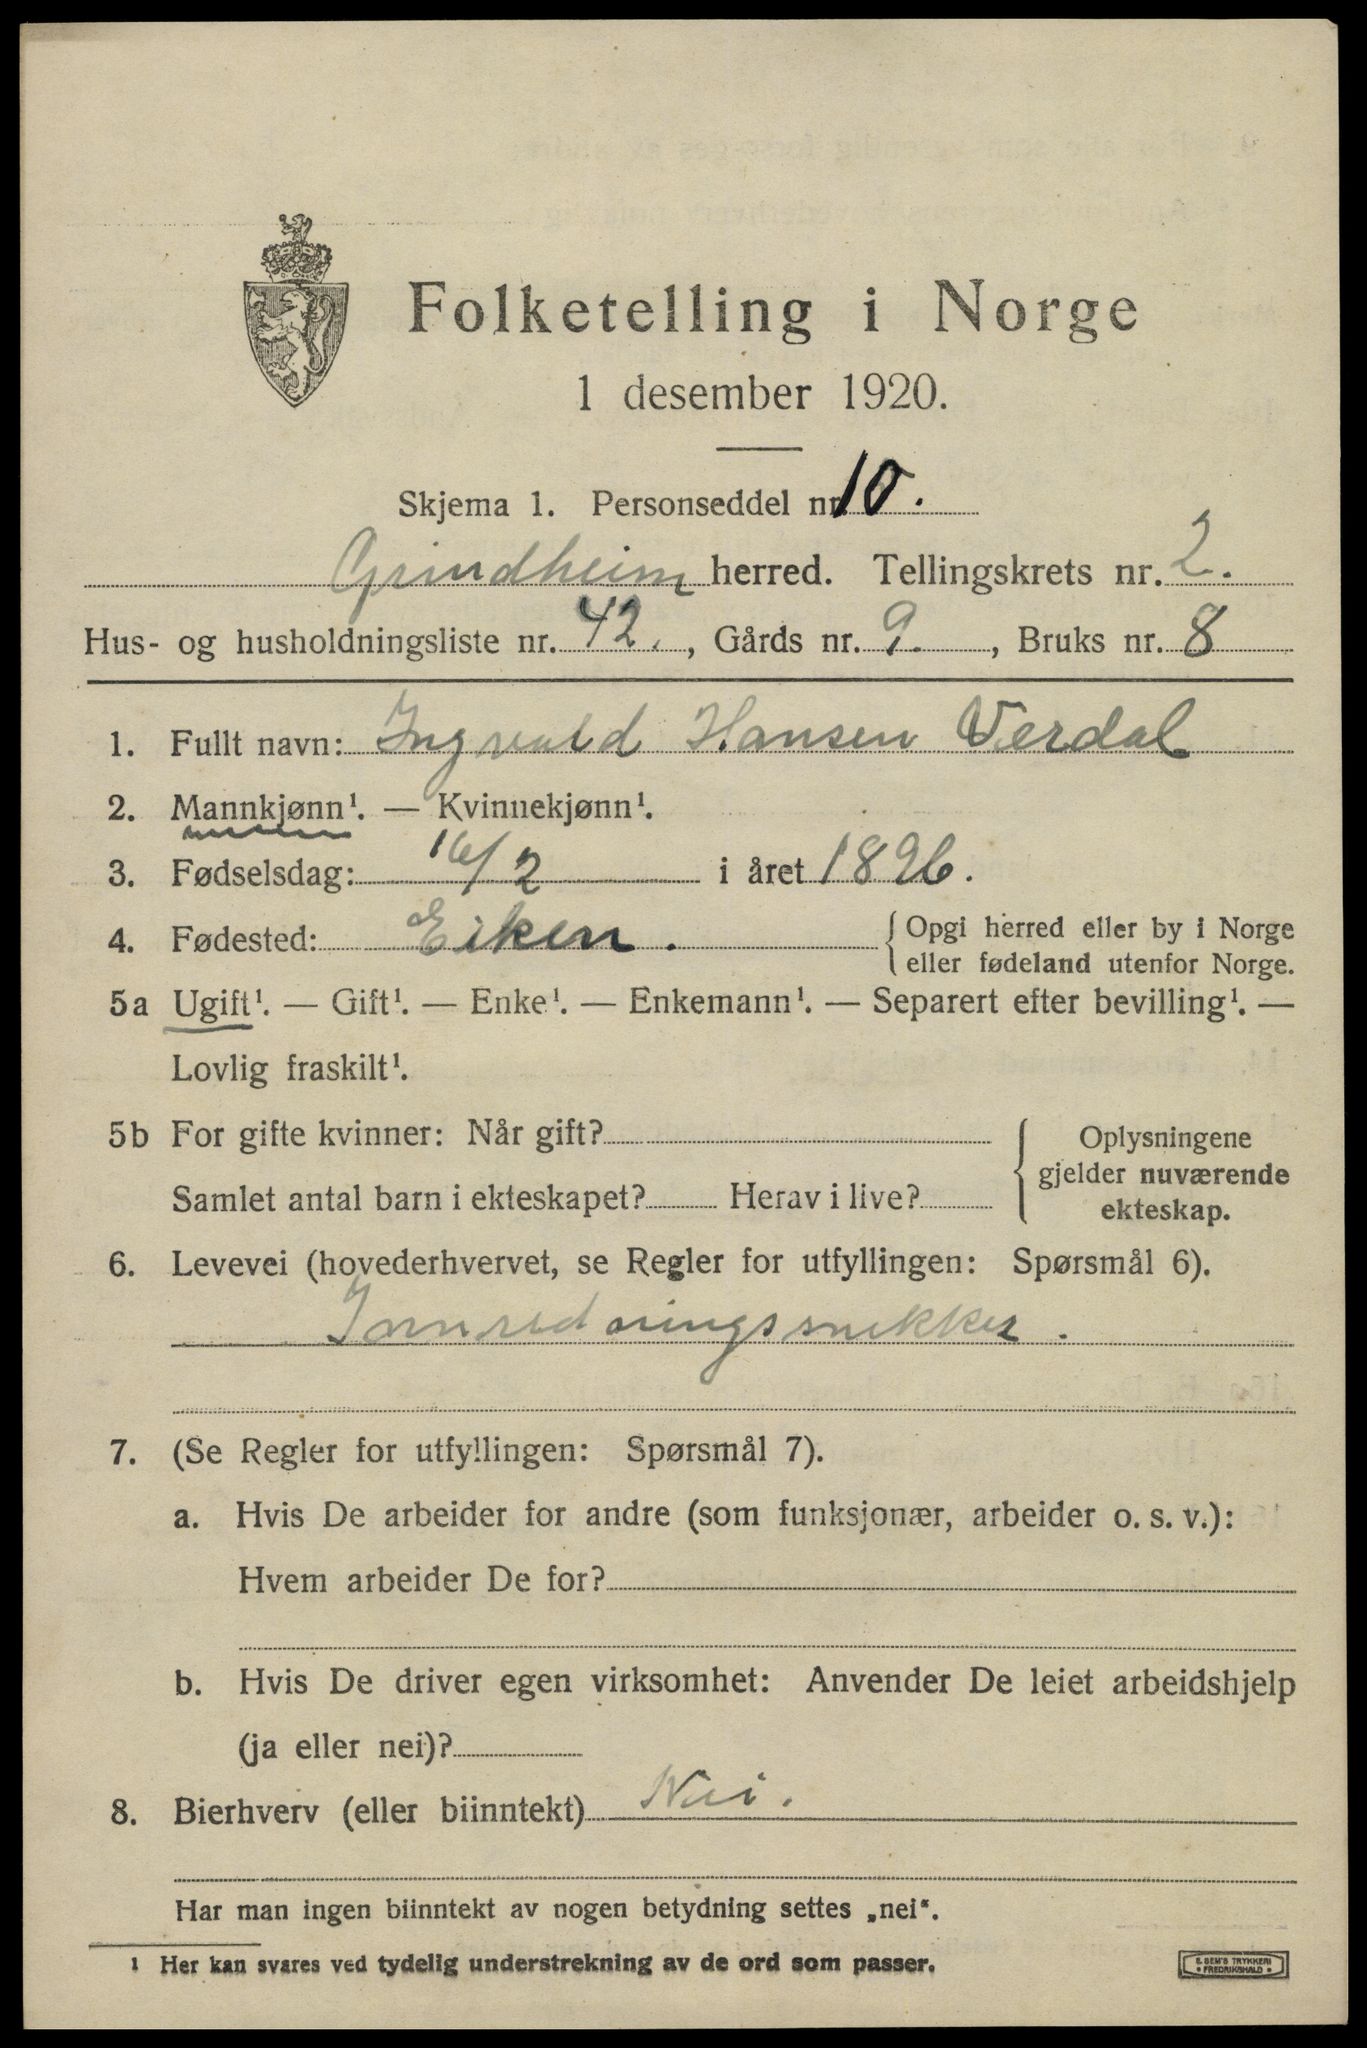 Folketelling i Norge
1 desember 1920.
Skjema 1. Personseddel nr. 10.
Grindheim herred. Tellingskrets nr. 2.
Hus- og husholdningsliste nr. 42., Gårds nr. 9., Bruks nr. 8
1. Fullt navn: Ingvald Hansen Verdal
2. Mannkjønn¹. — Kvinnekjønn¹.
3. Fødselsdag: 16/2 i året 1896.
4. Fødested: Eiken. { Opgi herred eller by i Norge
eller fødeland utenfor Norge.
5a Ugift¹. — Gift¹. — Enke¹. — Enkemann¹. — Separert efter bevilling¹. —
Lovlig fraskilt¹.
5b For gifte kvinner: Når gift?
Samlet antal barn i ekteskapet? Herav i live?
{ Oplysningene
gjelder nuværende
ekteskap.
6. Levevei (hovederhvervet, se Regler for utfyllingen: Spørsmål 6).
Innredningssnekker.
7. (Se Regler for utfyllingen: Spørsmål 7).
a. Hvis De arbeider for andre (som funksjonær, arbeider o. s. v.):
Hvem arbeider De for?
b. Hvis De driver egen virksomhet: Anvender De leiet arbeidshjelp
(ja eller nei)?
8. Bierhverv (eller biinntekt) Nei.
Har man ingen biinntekt av nogen betydning settes „nei“.
1 Her kan svares ved tydelig understrekning av de ord som passer.
E. SEM'S TRYKKERI
• FREDRIKSHALD •